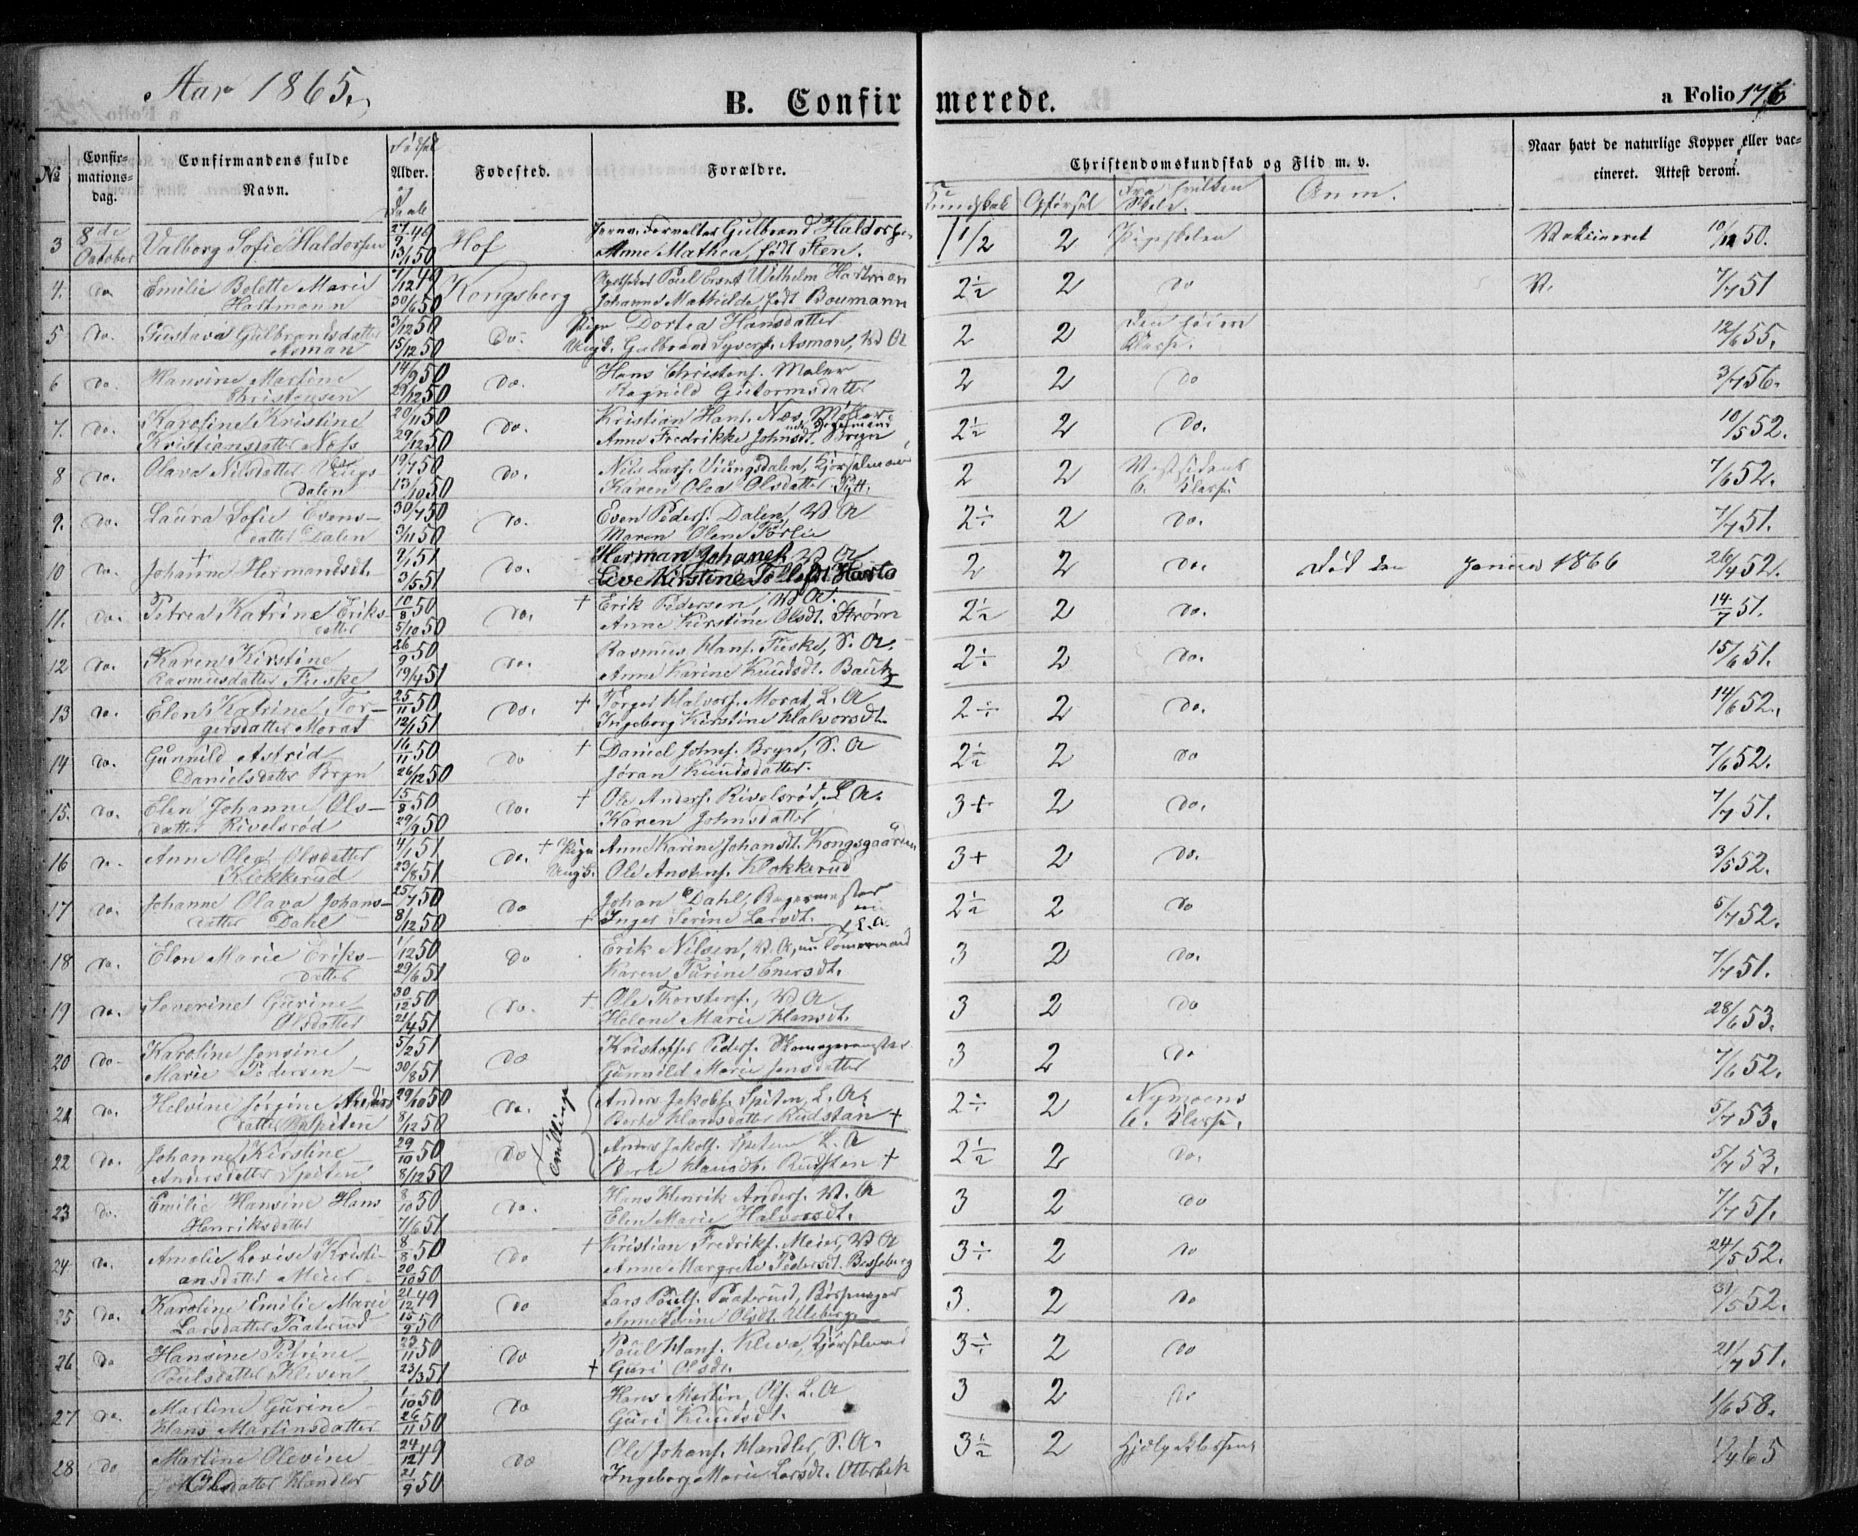 Aar 1865.
B. Confirmerede.
a Folio 176
No
Confirmationsdag.
Confirmandens fulde Navn.
Fødsel Alder. og Daab
Fødested.
Forældre.
Christendomskundskab og Flid m. v.
Kundskab Opførsel Fra hvilken Skole. Anm.
Naar havt de naturlige Kopper eller vaccineret. Attest derom.
3 8de October Valborg Sofie Haldorsen 27/9 49 13/1 50 Hof Gulbrand Haldorsen Anne Mathea, født Sten. 1 1/2 2 Pigeskolen Vaksineret 50.
4. do Emilie Bolette Marie Hartmann 1/12 49 30/6 50 Kongsberg Poul Ernst Wilhelm Hartman Johanne Mathilde, født Boumann 2 1/2 2 do V. 7/7 51
5 do. Gustava Gulbrandsdatter Asman 3/12 50 15/12 50 do. Pige Dortea Hansdatter Ungk. Gulbrand Syvers. Asman, V. A 2 2 den høiere Klasse. 12/6 55.
6 do. Hansine Martine Christensen 14/9 50 29/12 50 do. Hans Christens. Maler Ragnild Gutormsdatter 2 2 do 3/7 56.
7. do. Karoline Kristine Kristiansdatter Næss 20/11 50 29/12 50 do. Kristian Hans. Næs, Møller Anne Fredrikke Johnsdt. Bryn 2 1/2 2 do. 10/5 52.
8 do. Olava Nilsdatter Viingsdalen 19/7 50 13/10 50 do. Nils Lars. Viingsdalen, Kjørselmand Karen Olea Olsdatter Pytt. 2 2 Vestsidens 6. Klasse 7/6 52.
9. do. Laura Sofie Evensdatter Dalen 30/7 50 3/11 50 do. Even Peders. Dalen, V. A Maren Olene Torlie 2 ÷ 2 do. 7/7 51.
10 do. Johanne Hermansdt. 9/1 51 3/5 51 do. Herman Johanes. V. A Live Kirstine Tollefsdt. 2 2 do. Død den Januar 1866 26/7 52.
11. do. Petrea Katrine Eriksdatter 10/8 50 5/10 50 do. + Erik Pedersen, V. A. Anne Kirstine Olsdt. Strøm 2 1/2 2 do. 14/7 51.
12 do. Karen Kirstine Rasmusdatter Fuske 26/9 50 19/4 51 do. Rasmus Hans. Fuske, S. A. Anne Karine Knudsdt. Bautz 2 ÷ 2 do. 15/6 51.
13 do. Elen Katrine Torgersdatter Morat 25/11 50 12/1 51 do. + Torger Halvors. Morat, L. A Ingeborg Kirstine Halvorsdt. 2 ÷ 2 do. 14/6 52.
14 do. Gunnild Astrid Danielsdatter Bryn 16/11 50 26/12 50 do + Daniel Johns. Bryn, S. A Jøran Knudsdatter. 2 1/2 2 do 7/6 52.
15. do. Elen Johanne Olsdatter Rivelsrød 15/8 50 29/9 50 do. + Ole Anders. Rivelsrød, L. A. Karen Johnsdatter 3+ 2 do. 7/7 51.
16 do. Anne Olea Olsdatter Klokkerud 4/1 51 23/8 51 do. + Pige Anne Karine Johansdt. Kongsgaarden Ungk. Ole Anstens. Klokkerud 3+ 2 do. 3/5 52.
17 do. Johanne Olava Johansdatter Dahl 25/7 50 8/12 50 do Johan Dahl, Bagermester + Inger Serine Larsdt. 2 1/2 2 do 6/7 52.
18 do. Elen Marie Eriksdatter 1/12 50 29/6 51 do Erik Nilsen, V. A, nu Tømermand Karen Turine Enersdt. 3 2 do. 7/7 51.
19 do. Severine Gurine Olsdatter 30/12 50 21/4 51 do. + Ole Thorstens., V. A Helene Marie Hansdt. 3 2 do 28/6 53.
20 do- Karoline Jensine Marie Pedersen 5/2 51 30/8 51 do Kristoffer Peders. Skomagermester Gunnild Marie Jensdatter 3 2 do 7/6 52.
21 do. Helvine Jørgine Andersdatter Spiten 29/10 50 8/12 50 do. Tvillinge Anders Jakobs. Spiten, L. A. Berte Hansdatter Rudstan + 2 ÷ 2 Nymoens 6. Klasse. 5/7 53.
22 do. Johanne Kirstine Andersdatter Spiten 29/10 50 8/12 50 do Anders Jakobs. Spiten L. A Berte Hansdt. Rudstan + 2 1/2 2 do. 5/7 53.
23 do. Emilie Hansine Hans Henriksdatter 8/10 50 7/6 51 do. Hans Henrik Anders. V. A Elen Marie Halvorsdt. 3 2 do 7/7 51.
24 do. Amalie Lovise Kristiansdatter Meier 8/8 50 20/10 50 do + Kristian Fredriks. Meier, V. A Anne Margrete Pedersdt. Besseberg 3 ÷ 2 do 24/5 52.
25 do. Karoline Emilie Marie Larsdatter Paaterud 21/12 49 15/9 50 do Lars Pouls. Paaterud, Bøssemager Anne Olsdt. Ulleberg 3. 2 do 31/5 52.
26 do Hansine Petrine Poulsdatter Kleven 23/11 50 23/3 51 do Poul Hans. Kleve, Kjørselmand + Guri Olsdt. 3 ÷ 2 do 21/7 51.
27 do. Martine Gurine Hans Martinsdatter 1/10 50 26/11 50 do Hans Martin Ols. L. A Guri Knudsdt. 3 2 do 1/6 58.
28 do Martine Olevine Olsdatter Handler 24/12 49 21/9 50 do Ole Johans. Handler, S. A. Ingeborg Marie Larsdt. Otterbek 3 1/2 2 Hjælpeklassen 65